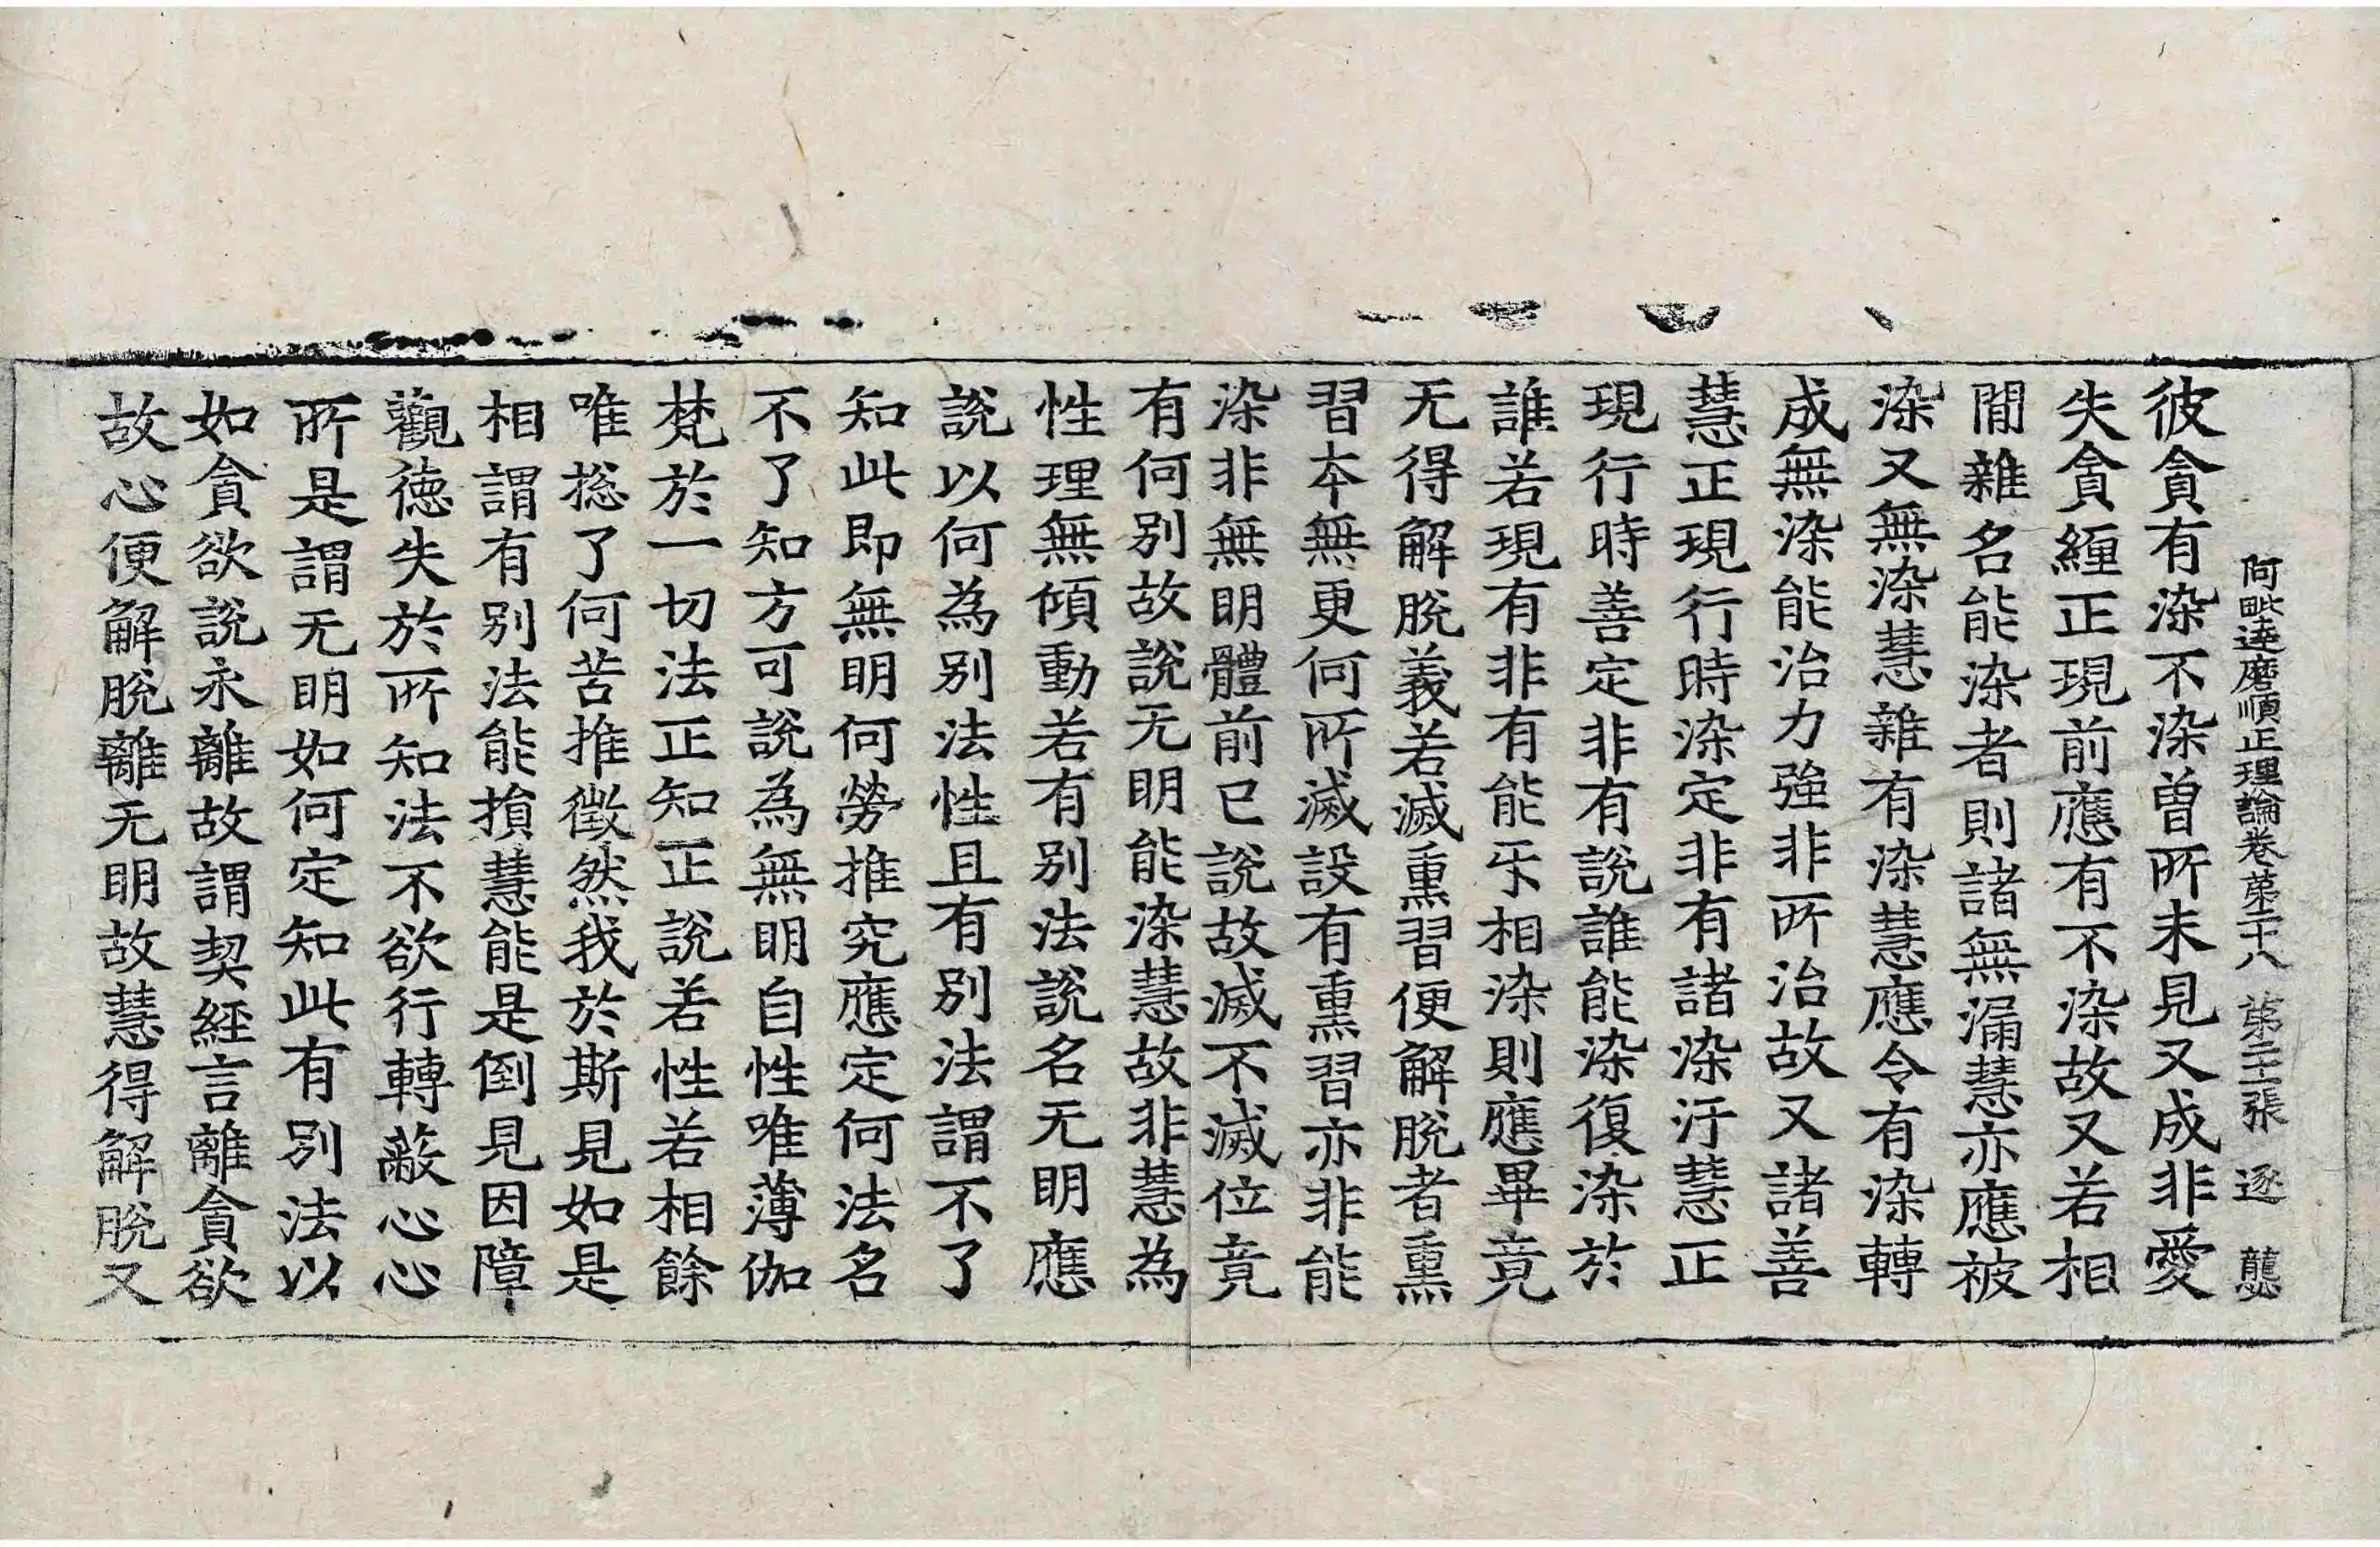 阿毗達磨順正理論卷第二十八 第二十二張 逐 㡣
彼貪有染不染曾所未見又成非愛
失貪纏正現前應有不染故又若相
閒雜名能染者則諸無漏慧亦應被
染又無染慧雜有染慧應令有染轉
成無染能治力強非所治故又諸善
慧正現行時染定非有諸染汙慧正
現行時善定非有說誰能染復染於
誰若現有非有能㸦相染則應畢竟
无得解脫義若滅熏習便解脫者熏
習本無更何所滅設有熏習亦非能
染非無明體前已說故滅不滅位竟
有何別故說无明能染慧故非慧為
性理無傾動若有別法說名无明應
說以何為別法性且有別法謂不了
知此即無明何勞推究應定何法名
不了知方可說為無明自性唯薄伽
梵於一切法正知正說若性若相餘
唯揔了何苦推徵然我於斯見如是
相謂有別法能損慧能是倒見因障
觀德失於所知法不欲行轉蔽心心
所是謂无明如何定知此有別法以
如貪欲說永離故謂契經言離貪欲
故心便解脫離无明故慧得解脫又